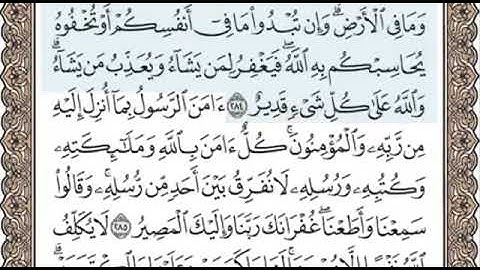 وَمَا فِي ٱلْأَرْضِۗ وَإِن تُبْدُوا۟ مَا فِيٓ أَنفُسِكُمْ أَوْ تُخْفُوهُ
يُحَاسِبْكُم بِهِ ٱللَّهُۖ فَيَغْفِرُ لِمَن يَشَآءُ وَيُعَذِّبُ مَن يَشَآءُۗ
وَٱللَّهُ عَلَىٰ كُلِّ شَيْءٍ قَدِيرٌ ٢٨٤ ءَامَنَ ٱلرَّسُولُ بِمَآ أُنزِلَ إِلَيْهِ
مِن رَّبِّهِۦ وَٱلْمُؤْمِنُونَۚ كُلٌّ ءَامَنَ بِٱللَّهِ وَمَلَٰٓئِكَتِهِۦ
وَكُتُبِهِۦ وَرُسُلِهِۦ لَا نُفَرِّقُ بَيْنَ أَحَدٍ مِّن رُّسُلِهِۦۚ وَقَالُوا۟
سَمِعْنَا وَأَطَعْنَاۖ غُفْرَانَكَ رَبَّنَا وَإِلَيْكَ ٱلْمَصِيرُ ٢٨٥ لَا يُكَلِّفُ